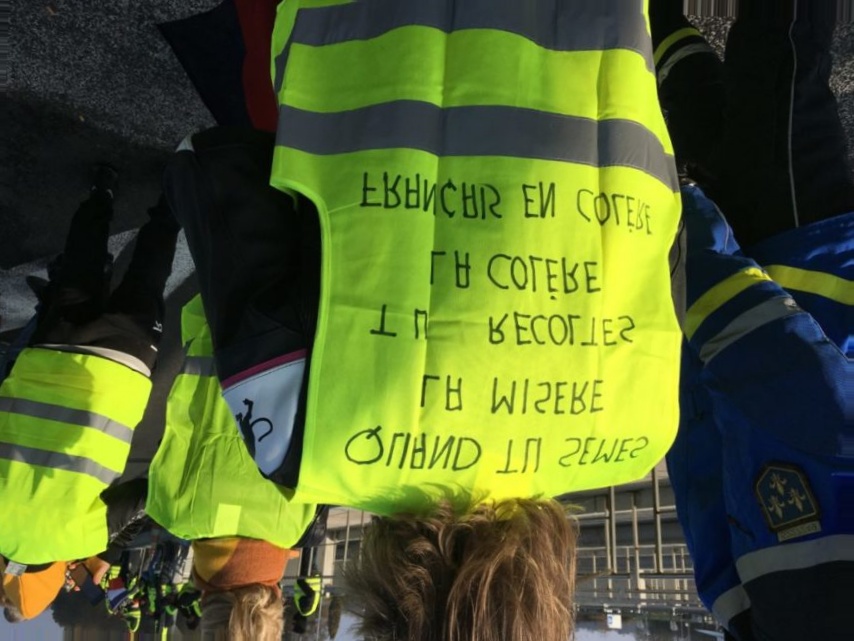 QUAND TU SEMES
LA MISERE
TU RECOLTES
LA COLÈRE
FRANCAIS EN COLÈRE